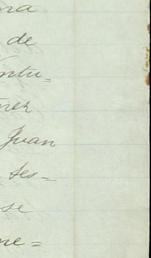 na
de
ntu=
ner
Juan
tes=
se
me=